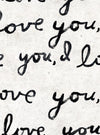 love you,
e you, I lo
ove you,
love you